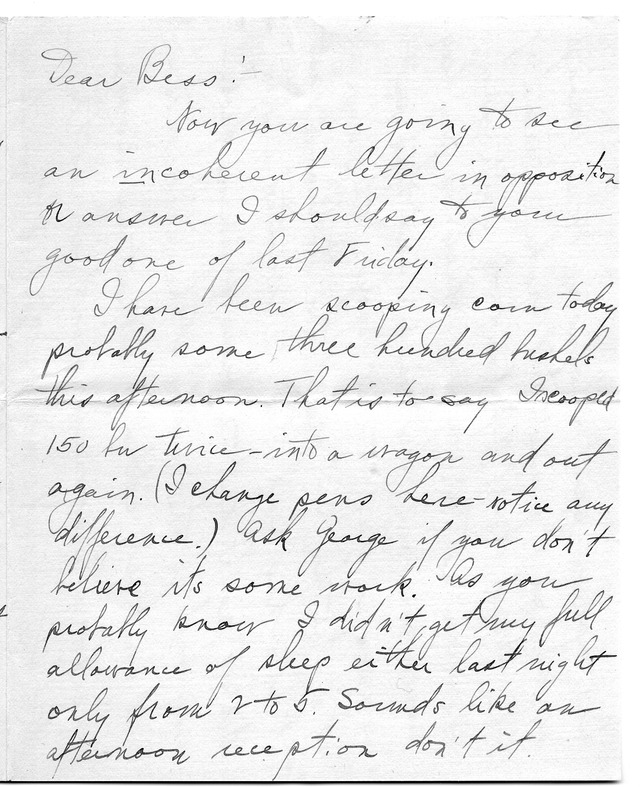 Dear Bess:-
Now you are going to see
an incoherent letter in opposition
or answer I should say to your
good one of last Friday.
I have been scooping corn today
probably some three hundred bushels
this afternoon. That is to say I scooped
150 bu twice - into a wagon and out
again. (I change pens here - notice any
difference.) Ask George if you don't
believe its some work. As you
probably know I didn't get my full
allowance of sleep either last night
only from 2 to 5. Sounds like an
afternoon reception don't it.